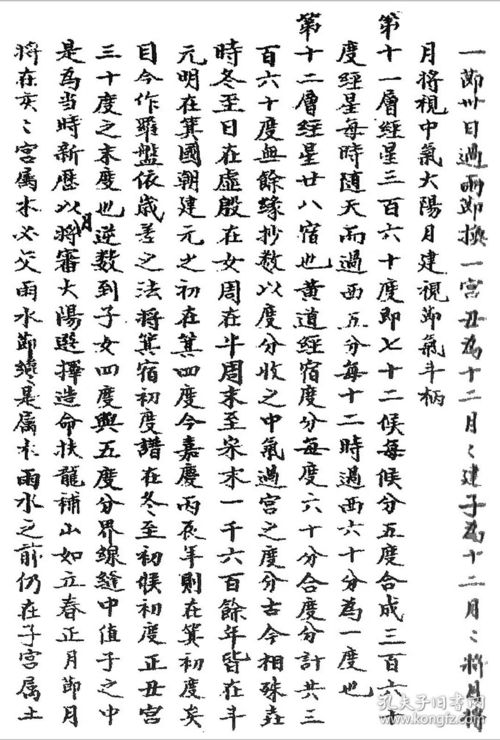 一節卅日過兩節換一宮丑為十二月〻建子為十二月〻將月將
月將視中氣太陽月建視節氣斗柄
第十一層經星三百六十度即七十二候每候分五度合成三百六十
度經星每時隨天而過西五分每十二時過西六十分為一度也
第十二層經星廿八宿也黃道經宿度分每度六十分合度分計共三
百六十度無餘緣抄數以度分收之中氣過宮之度分古今相殊堯
時冬至日在虛殷在女周在斗周末至宋末一千六百餘年皆在斗
元明在箕國朝建元之初在箕四度今嘉慶丙辰年則在箕初度矣
目今作羅盤依歲差之法將箕宿初度譜在冬至初候初度正丑宮
三十度之末度也逆數到子女四度與五度分界線縫中值子之中
是為當時新曆以月將審太陽選擇造命扶龍補山如立春正月節月
將在亥〻宮屬水必交雨水節纔是屬木雨水之前仍在子宮屬土
孔夫子旧书网
www.kongfz.com